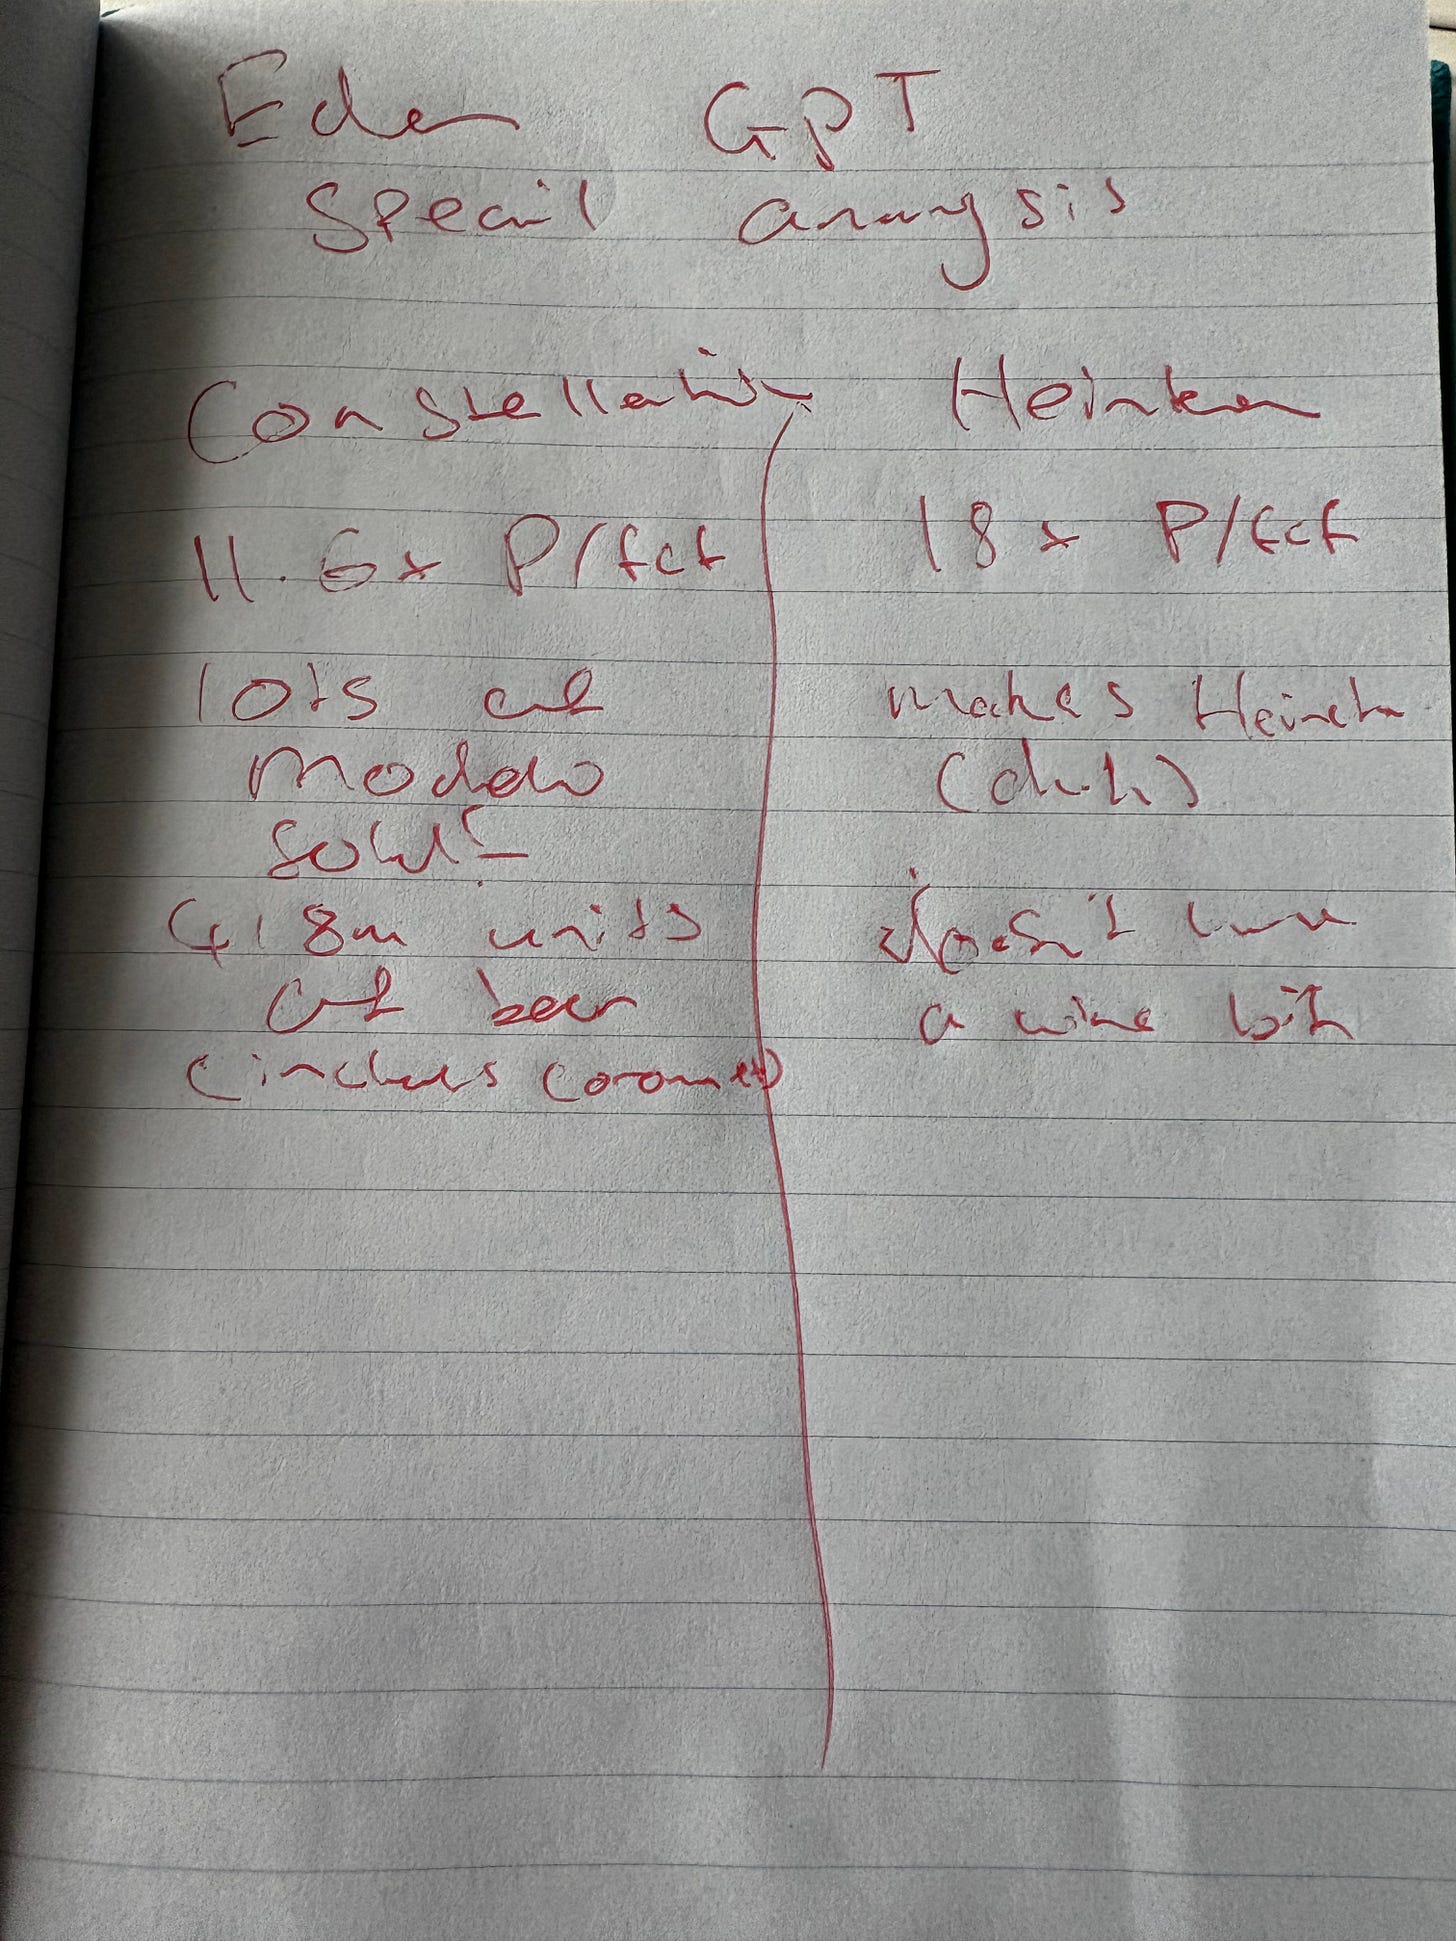 Eden GPT
Special analysis
Constellation
11.6x P/fcf
lots of
Modelo
sold!
418m units
of beer
(includes corona)
Heineken
18x P/fcf
makes Heineken
(duh)
doesn't have
a wine biz